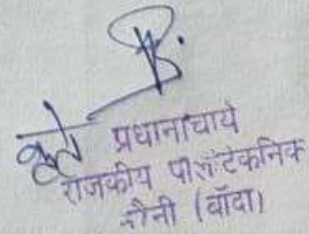 कृते प्रधानाचार्य
राजकीय पालीटेकनिक
(बाँदा)